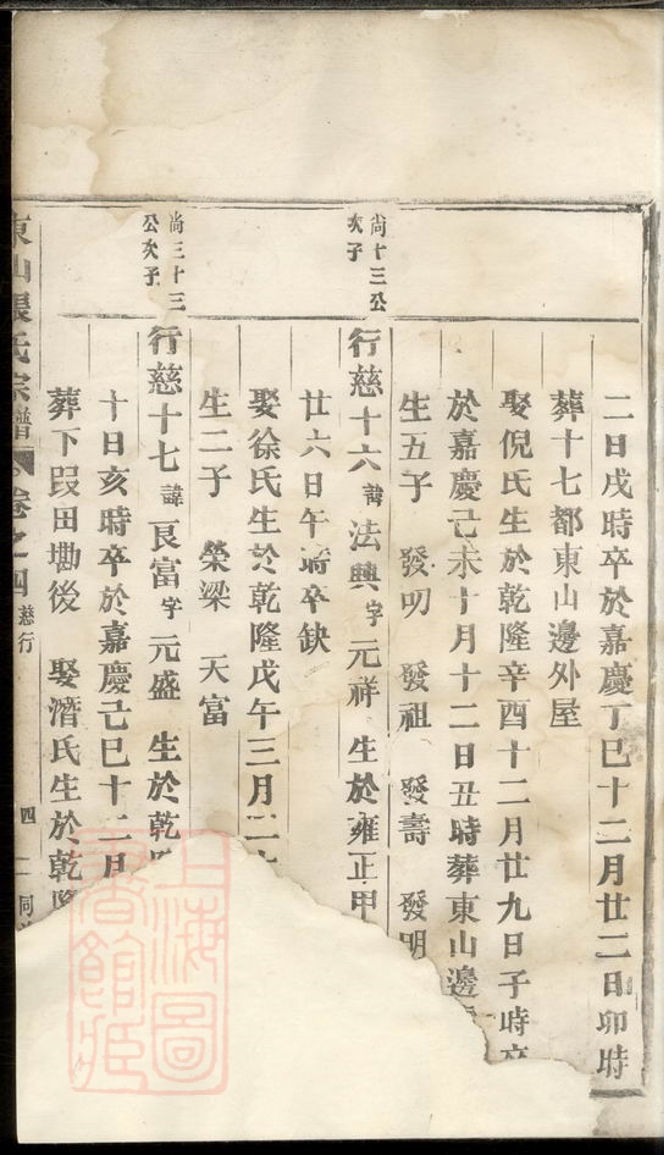 二日戌時卒於嘉慶丁巳十二月廿二日卯時
葬十七都東山邊外屋
娶倪氏生於乾隆辛酉十二月廿九日子時卒
於嘉慶己未十月十二日丑時葬東山邊
生五子 發明 發祖 發壽 發明
尚十三公
次子
行慈十六 諱 法興 字 元祥 生於雍正甲
廿六日午時卒缺
娶徐氏生於乾隆戊午三月二
生二子 榮梁 天富
尚三十三
公次子
行慈十七 諱 良富 字 元盛 生於乾
十日亥時卒於嘉慶己巳十二月
葬下段田墈後 娶潛氏生於乾隆
東山張氏宗譜 卷之四 慈行 四 二 同
上海圖
書館藏